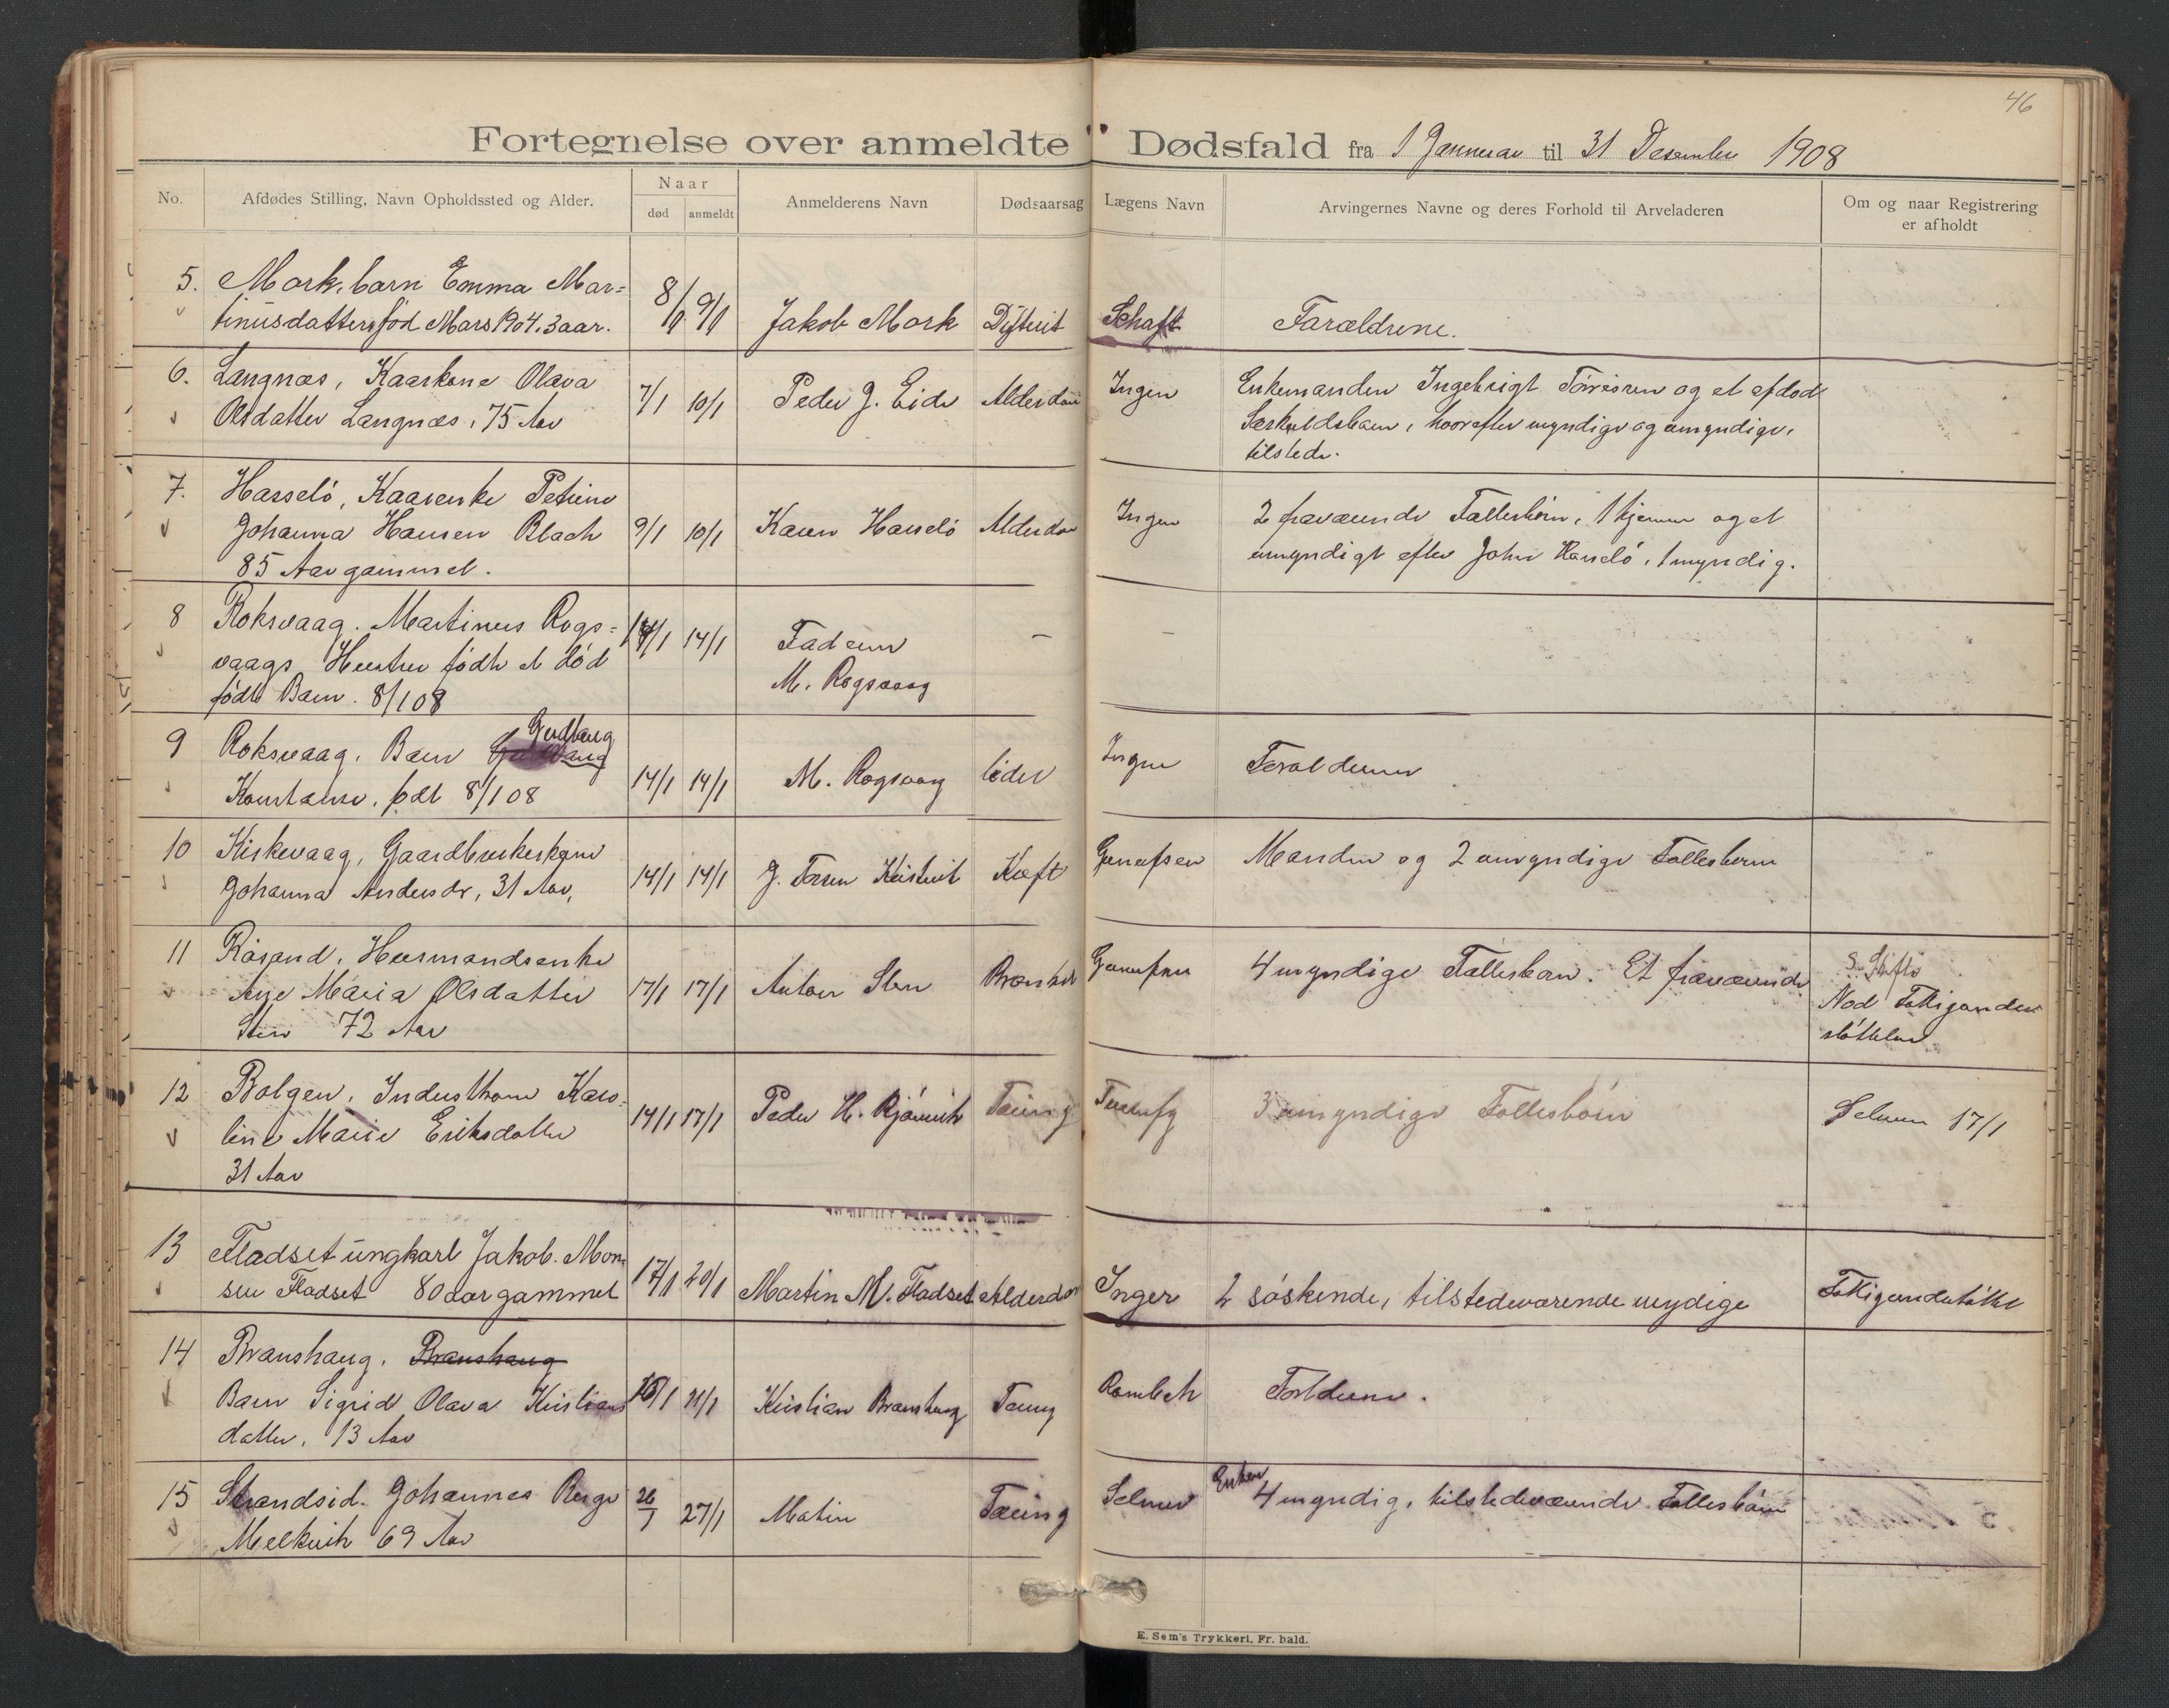 46
Fortegnelse over anmeldte Dødsfald fra 1 Januar til 31 Desember 1908
No. Afdødes Stilling, Navn Opholdssted og Alder. Naar død anmeldt Anmelderens Navn Dødsaarsag Lægens Navn Arvingernes Navne og deres Forhold til Arveladeren Om og naar Registrering er afholdt
5. Mork, barn Emma Mar=
tinusdatter, fød Mars 1904. 3 aar. 8/1 9/1 Jakob Mork Dyfterit Schaft Forældrene.
6. Langnæs, Kaarkone Olava
Olsdatter Langnæs, 75 Aar 7/1 10/1 Peder J. Eide Alderdom Ingen Enkemanden Ingebrigt og et afdød
Særkuldsbarn, hvorefter myndige og umyndige,
tilstede.
7. Hasselö, Kaarenke Petrine
Johanna Hansen Blach
85 Aar gammel. 9/1 10/1 Karen Hasselö Alderdom Ingen 2 fraværende Fællesbörn, 1 hjemme og et
umyndigt efter John Hasselö, 1 myndig.
8 Roksvaag. Martinus Rogs=
vaags Hustru födte et död
födt Barn. 8/1 08 14/1 14/1 Faderen — —
M. Rogsvaag
9 Roksvaag. Barn Gudlaug
Konstanse, födt 8/1 08 14/1 14/1 M. Rogsvaag Ingen Foreldrene
10 Kirkevaag, Gaardbrukerkone
Johanna Andersdr, 31 Aar, 14/1 14/1 J. Kræft Manden og 2 umyndige Fællesbörn
11 Røsand, Husmandsenke
Ane Maria Olsdatter
Sten 72 Aar 17/1 17/1 Anton Sten 4 myndige Fællesbørn. Et fraværende
12 Bolgen, Indersthone Karo=
line Marie Eriksdatter
31 Aar 14/1 17/1 Peder H. Tæring 3 umyndige Fællesbörn Selmer 17/1
13 Fladset ungkarl Jakob. Mon=
sen Fladset 80 aar gammel 17/1 20/1 Martin M. Fladset Alderdom Inger 2 söskende, tilstedeværende mydige
14 Branshaug. Branshaug
Barn Sigrid Olava Kristians
datter, 13 Aar 21/1 Kristian Branshaug Tæring Rambech Forldrene.
15 Strandsid. Johannes
Melkvik 69 Aar 26/1 27/1 Matin Tæring Selmer Enken 4 myndig, tilstedeværende Fællesbörn
E. Sem's Trykkeri, Fr. hald.